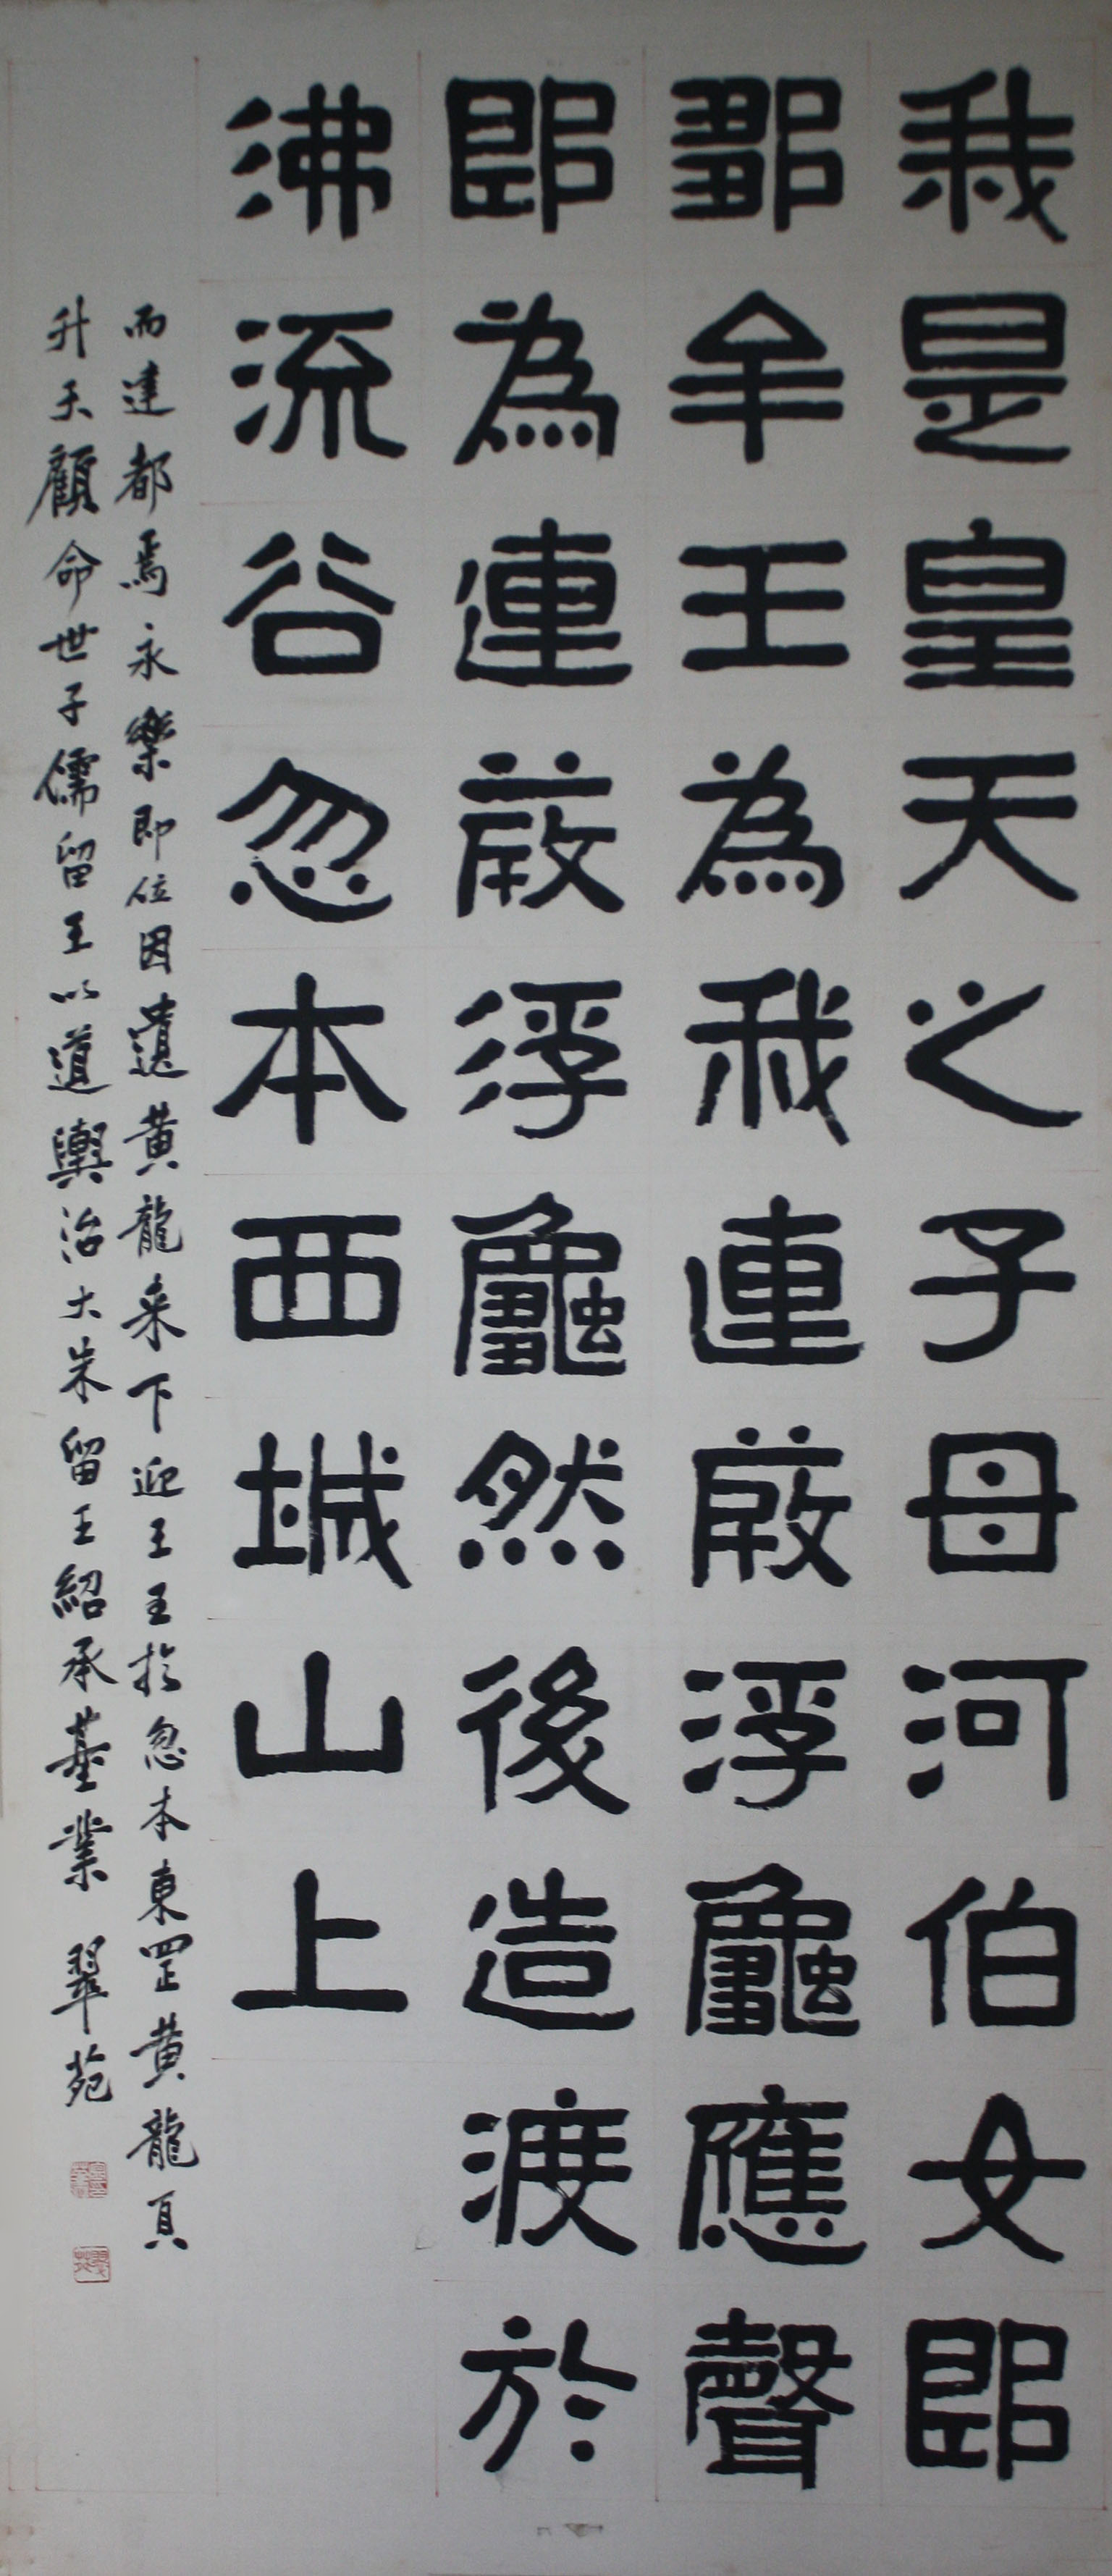 我是皇天之子母河伯女郎
鄒牟王為我連葭浮龜應聲
即為連葭浮龜然後造渡於
沸流谷忽本西城山上
而建都焉永樂即位因遣黃龍來下迎王王於忽本東罡黃龍頁
升天顧命世子儒留王以道輿治大朱留王紹承基業 翠苑